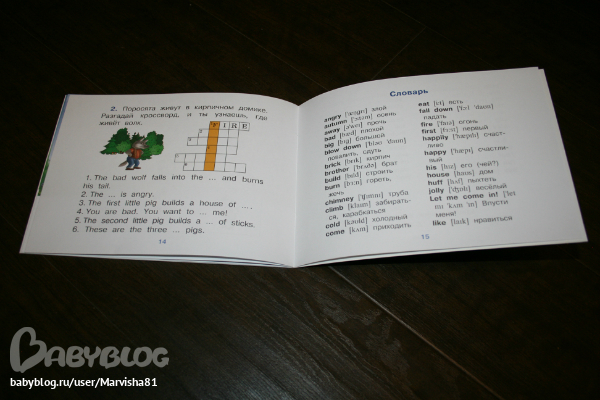 2. Поросята живут в кирпичном домике.
Разгадай кроссворд, и ты узнаешь, где
живёт волк.
FIRE
1. The bad wolf falls into the ... and burns
his tail.
2. The ... is angry.
3. The first little pig builds a house of ... .
4. You are bad. You want to ... me!
5. The second little pig builds a ... of sticks.
6. These are the three ... pigs.
14
Словарь
angry ['æŋgri] злой
autumn ['ɔ:təm] осень
away [ə'wei] прочь
bad [bæd] плохой
big [big] большой
blow down ['bləʊ 'daʊn]
повалить, сдуть
brick [brik] кирпич
brother ['brʌðə] брат
build [bild] строить
burn [bɜ:n] гореть,
жечь
chimney ['tʃimni] труба
climb [klaim] забирать-
ся, карабкаться
cold [kəʊld] холодный
come [kʌm] приходить
eat [i:t] есть
fall down ['fɔ:l 'daʊn]
падать
fire ['faiə] огонь
first [fɜ:st] первый
happily ['hæpili] счаст-
ливо
happy ['hæpi] счастли-
вый
his [hiz] его (чей?)
house [haʊs] дом
huff [hʌf] пыхтеть
jolly ['dʒɒli] весёлый
Let me come in! ['let
mi: kʌm 'in] Впусти
меня!
like [laik] нравиться
15
BABYBLOG
babyblog.ru/user/Marvisha81